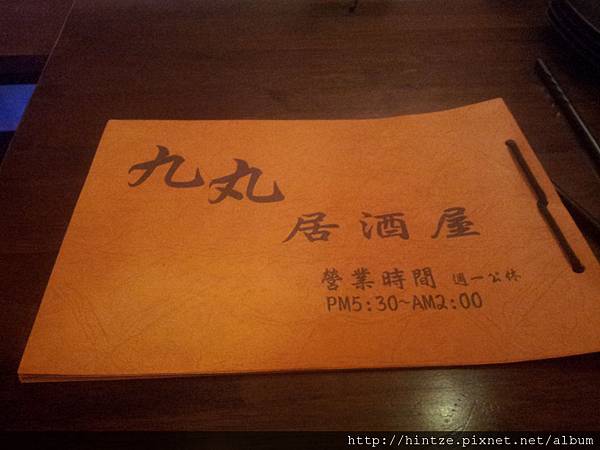 九丸
居酒屋
營業時間 週一公休
PM5:30~AM2:00
http://hintze.pixnet.net/album